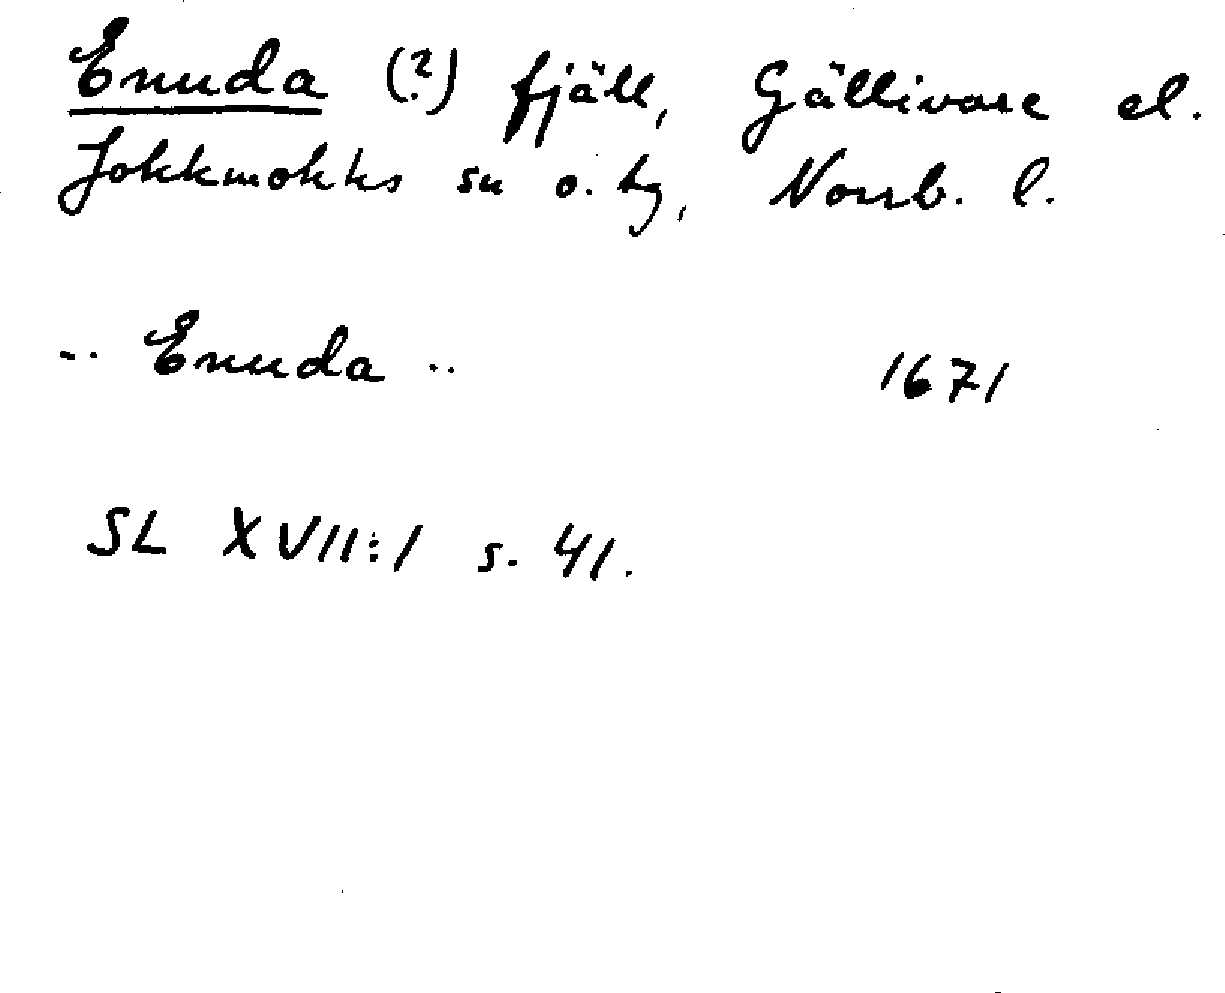 Enuda (?) fjäll, Gällivare el.
Jokkmokks sn o. tg, Norrb. l.
.. Enuda .. 1671
SL XVII:1 s. 41.